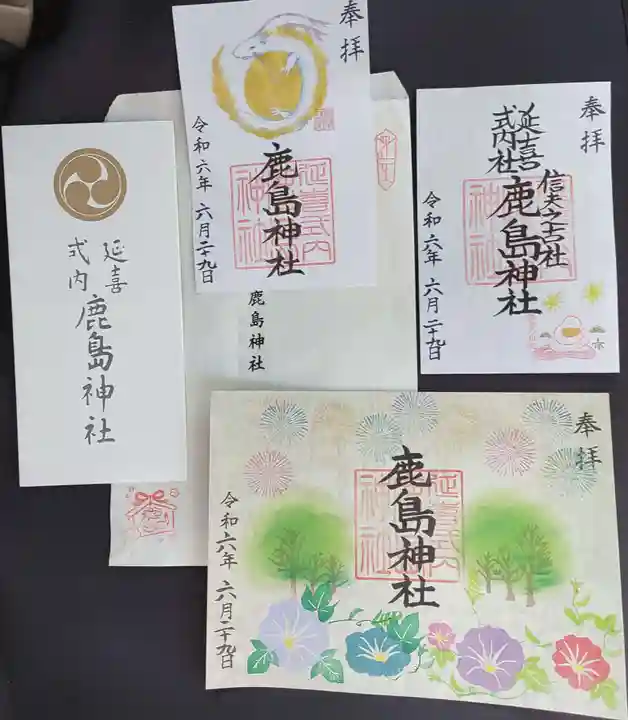 奉拝
延喜式内
鹿島神社
神社
令和六年 六月二十九日
延喜
式内
鹿島神社
鹿島神社
奉拝
信夫之古社
延喜
式内社
鹿島神社
神社
令和六年 六月二十九日
奉拝
延喜式内
鹿島神社
神社
令和六年 六月二十九日